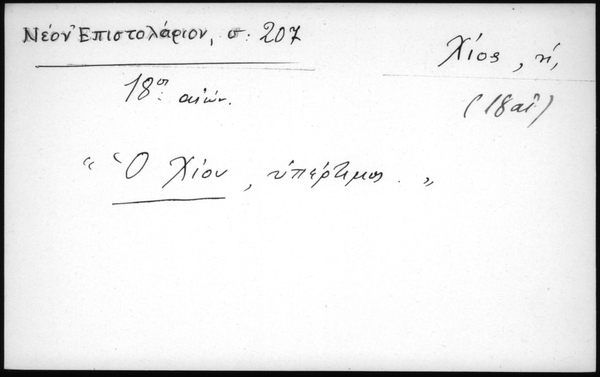 Νέον Ἐπιστολάριον, σ. 207
Χίος, ἡ,
18ος αἰών.
(18 αἰ)
“ Ὁ Χίου, ὑπέρτιμος. „